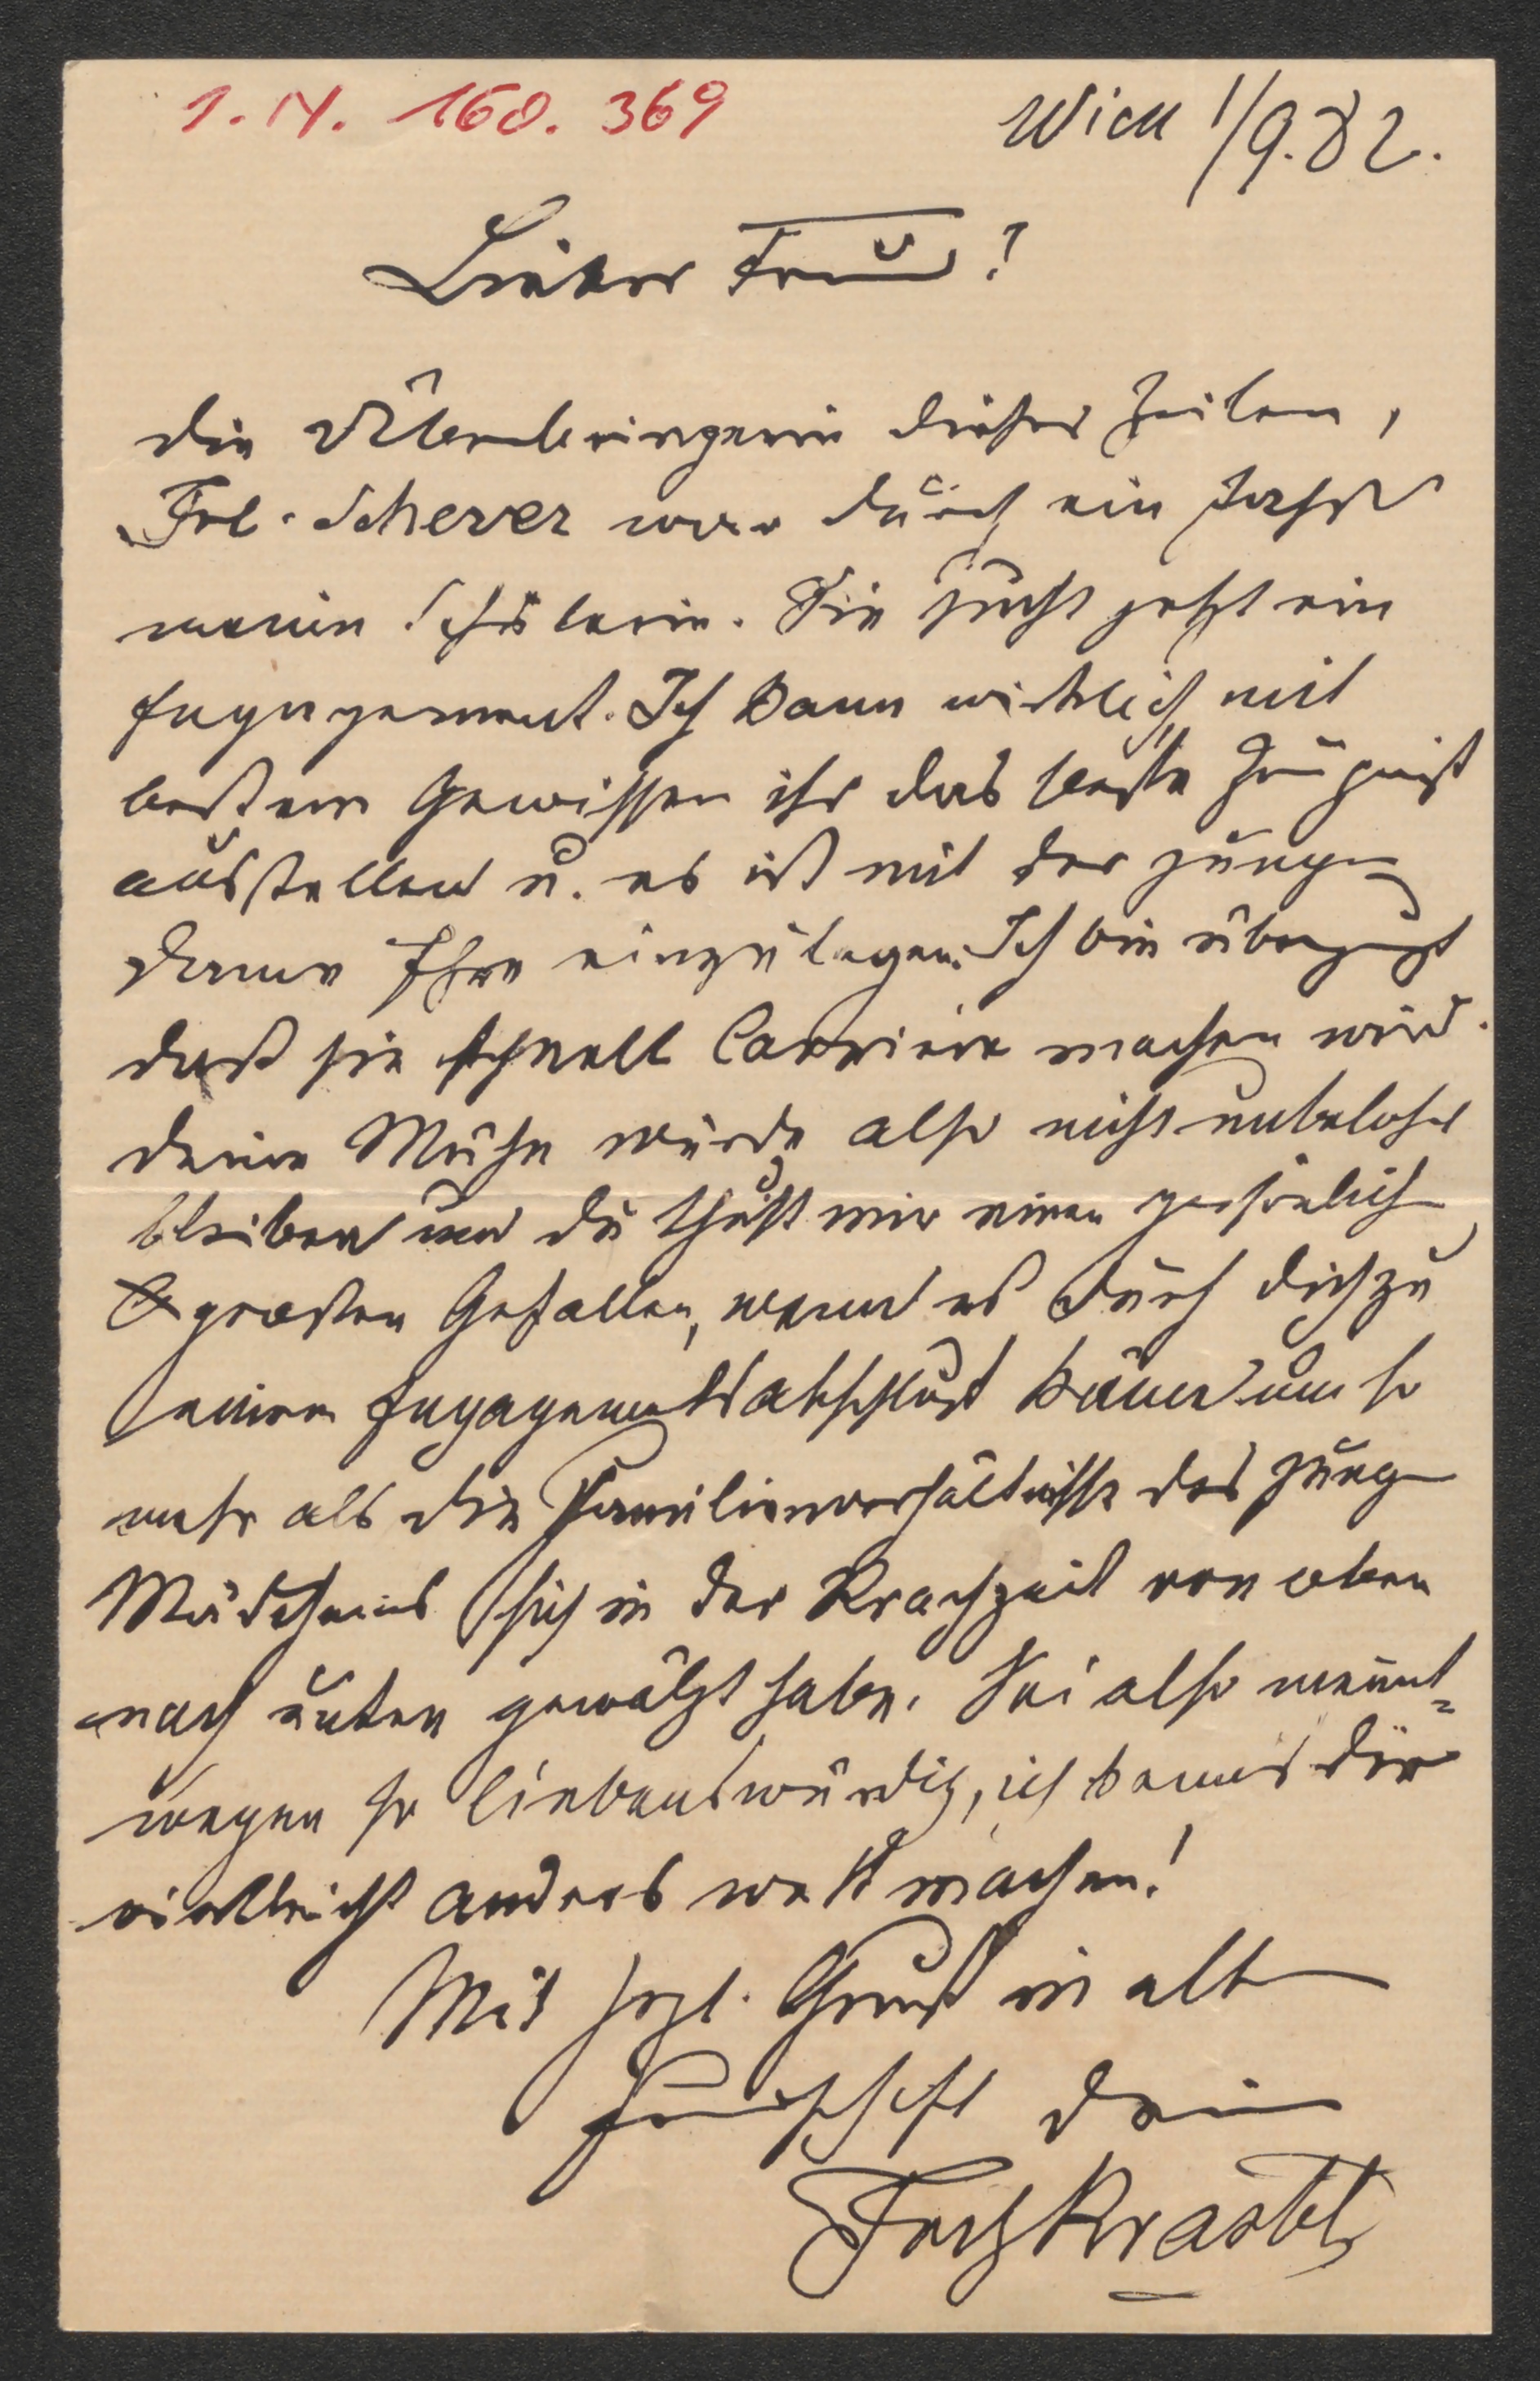 I. N. 160.369
Wien 1/9.82.
Lieber Freund!
die Überbringerin dieser Zeilen,
Frl. Scherer war durch ein Jahr
meine Schülerin. Sie sucht jetzt ein
Engagement. Ich kann wirklich mit
bestem Gewissen ihr das beste Zeugniß
ausstellen u. es ist mit der jungen
Dame Ehre einzulegen. Ich bin überzeugt
daß sie schnell Carriere machen wird.
deine Mühe würde also nicht unbelohnt
bleiben und du thust mir einen persönlichen
großen Gefallen, wenn es durch dich zu
einem Engagementsabschluß käme um so
mehr als die Familienverhältnisse des jungen
Mädchens sich in der Krachzeit von oben
nach unten gewälzt haben. Sei also meinet=
wegen so liebenswürdig, ich kanns dir
vielleicht anders wett machen!
Mit hrzl. Gruß in alter
Freundschaft dein
Fritz Krastel